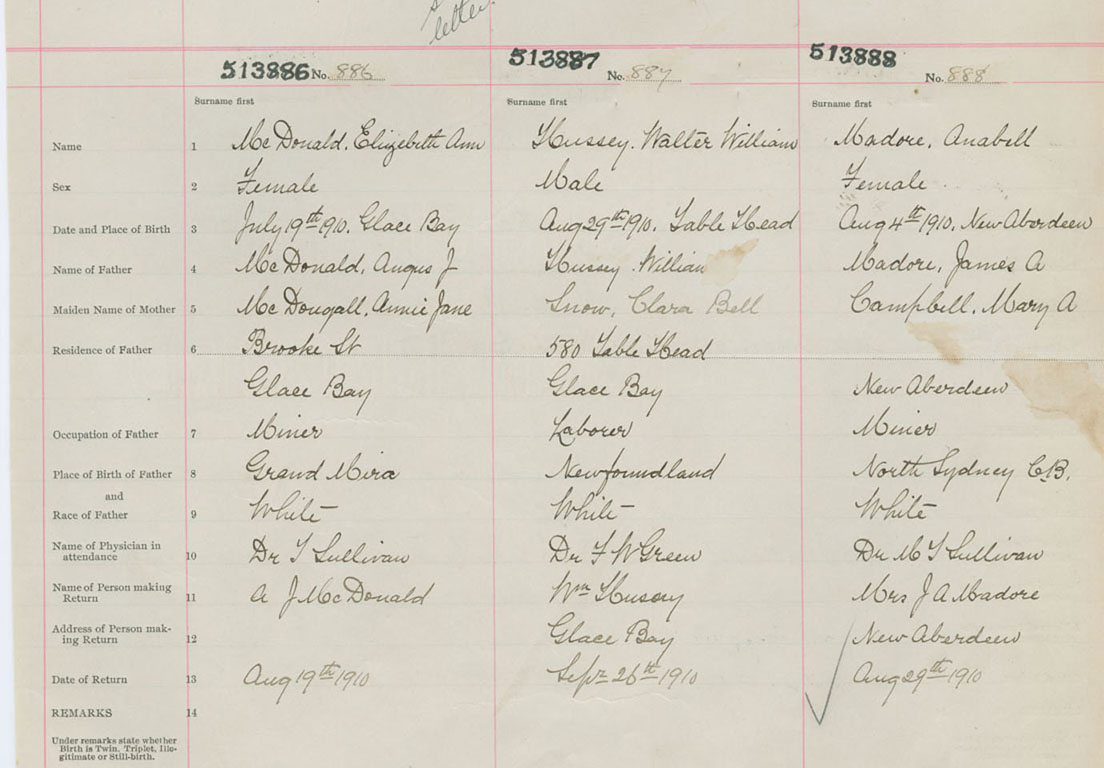 letter.
513886 No. 886 513887 No. 887 513888 No. 888
Surname first Surname first Surname first
Name 1 McDonald, Elizebeth Ann Hussey. Walter William Madore, Anabell
Sex 2 Female Male Female
Date and Place of Birth 3 July 19th 1910, Glace Bay Aug 29th 1910, Table Head Aug 4th 1910, New Aberdeen
Name of Father 4 McDonald, Angus J Hussey William Madore, James A
Maiden Name of Mother 5 McDougall, Annie Jane Snow, Clara Bell Campbell, Mary A
Residence of Father 6 Brooke St 580 Table Head
Glace Bay Glace Bay New Aberdeen
Occupation of Father 7 Miner Laborer Miner
Place of Birth of Father 8 Grand Mira Newfoundland North Sydney C.B.
and
Race of Father 9 White White White
Name of Physician in
attendance 10 Dr T Sullivan Dr F W Green Dr M T Sullivan
Name of Person making
Return 11 A J McDonald Wm Hussey Mrs J A Madore
Address of Person mak-
ing Return 12 Glace Bay New Aberdeen
Date of Return 13 Aug 19th 1910 Sepr 26th 1910 Aug 29th 1910
REMARKS 14
Under remarks state whether
Birth is Twin, Triplet, Ille-
gitimate or Still-birth.